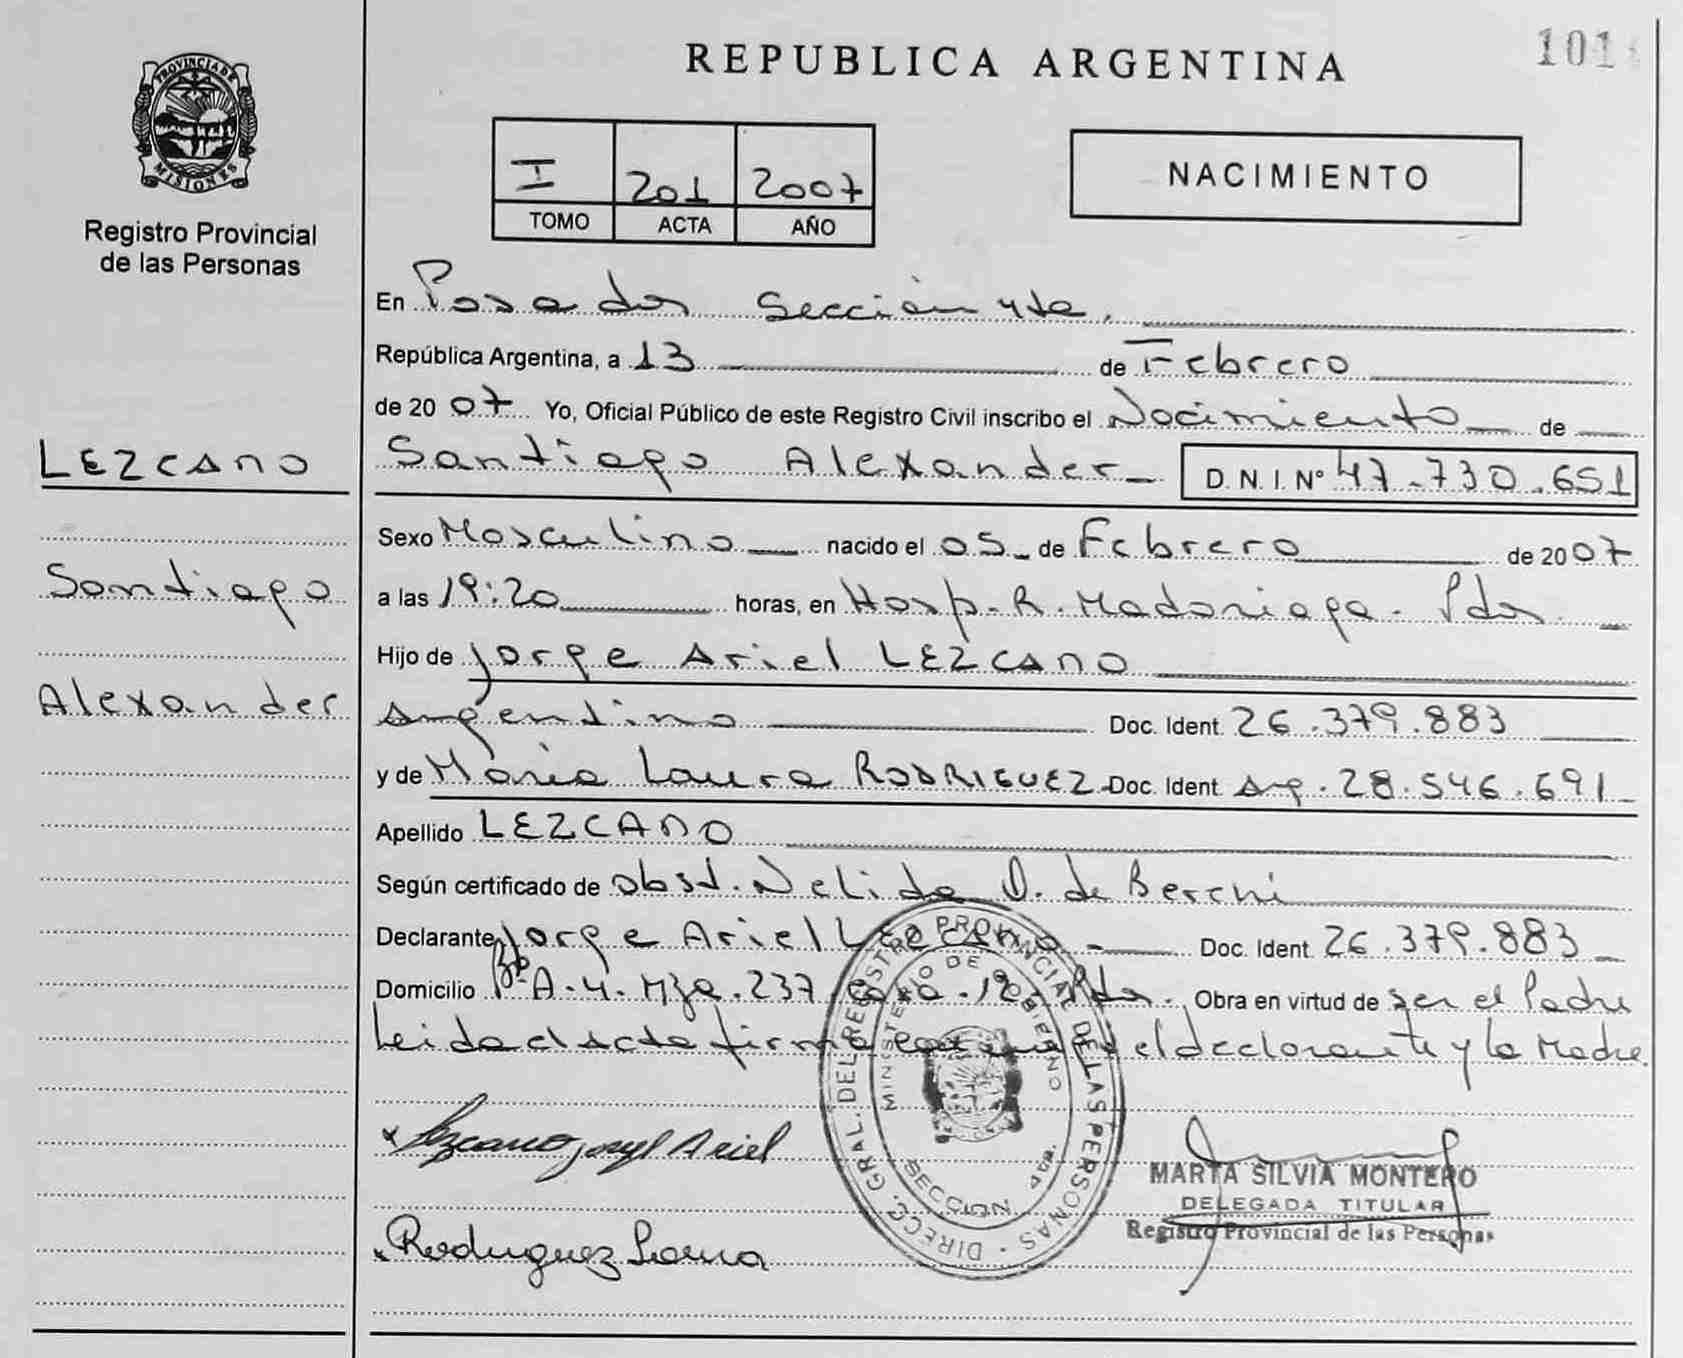 REPUBLICA ARGENTINA
101
PROVINCIA DE
MISIONES
Registro Provincial
de las Personas
I 201 2007
TOMO ACTA AÑO
NACIMIENTO
En Posadas Sección 4ta.
República Argentina, a 13 de Febrero
de 2007 Yo, Oficial Público de este Registro Civil inscribo el Nacimiento de
LEZCANO
Santiago Alexander D.N.I. Nº 47.730.651
Sexo Masculino nacido el 05 de Febrero de 2007
Santiago
a las 19:20 horas, en Hosp. R. Madariaga - Pdas
Hijo de Jorge Ariel LEZCANO
Alexander
Argentino Doc. Ident. 26.379.883
y de María Laura RODRIGUEZ Doc. Ident. Arg. 28.546.691
Apellido LEZCANO
Según certificado de obst. Nelida D. de Berchi
Declarante Jorge Ariel Lezcano Doc. Ident. 26.379.883
Domicilio Bº A-4. Mza. 237, casa. 12 Pdas. Obra en virtud de ser el Padre
Leida el Acta firma conmigo el declarante y la Madre.
DIRECC. GRAL. DEL REGISTRO PROVINCIAL DE LAS PERSONAS
MINISTERIO DE GOBIERNO
SECCION 4ta.
x Lezcano Jorge Ariel
MARTA SILVIA MONTERO
DELEGADA TITULAR
Registro Provincial de las Personas
x Rodriguez Laura